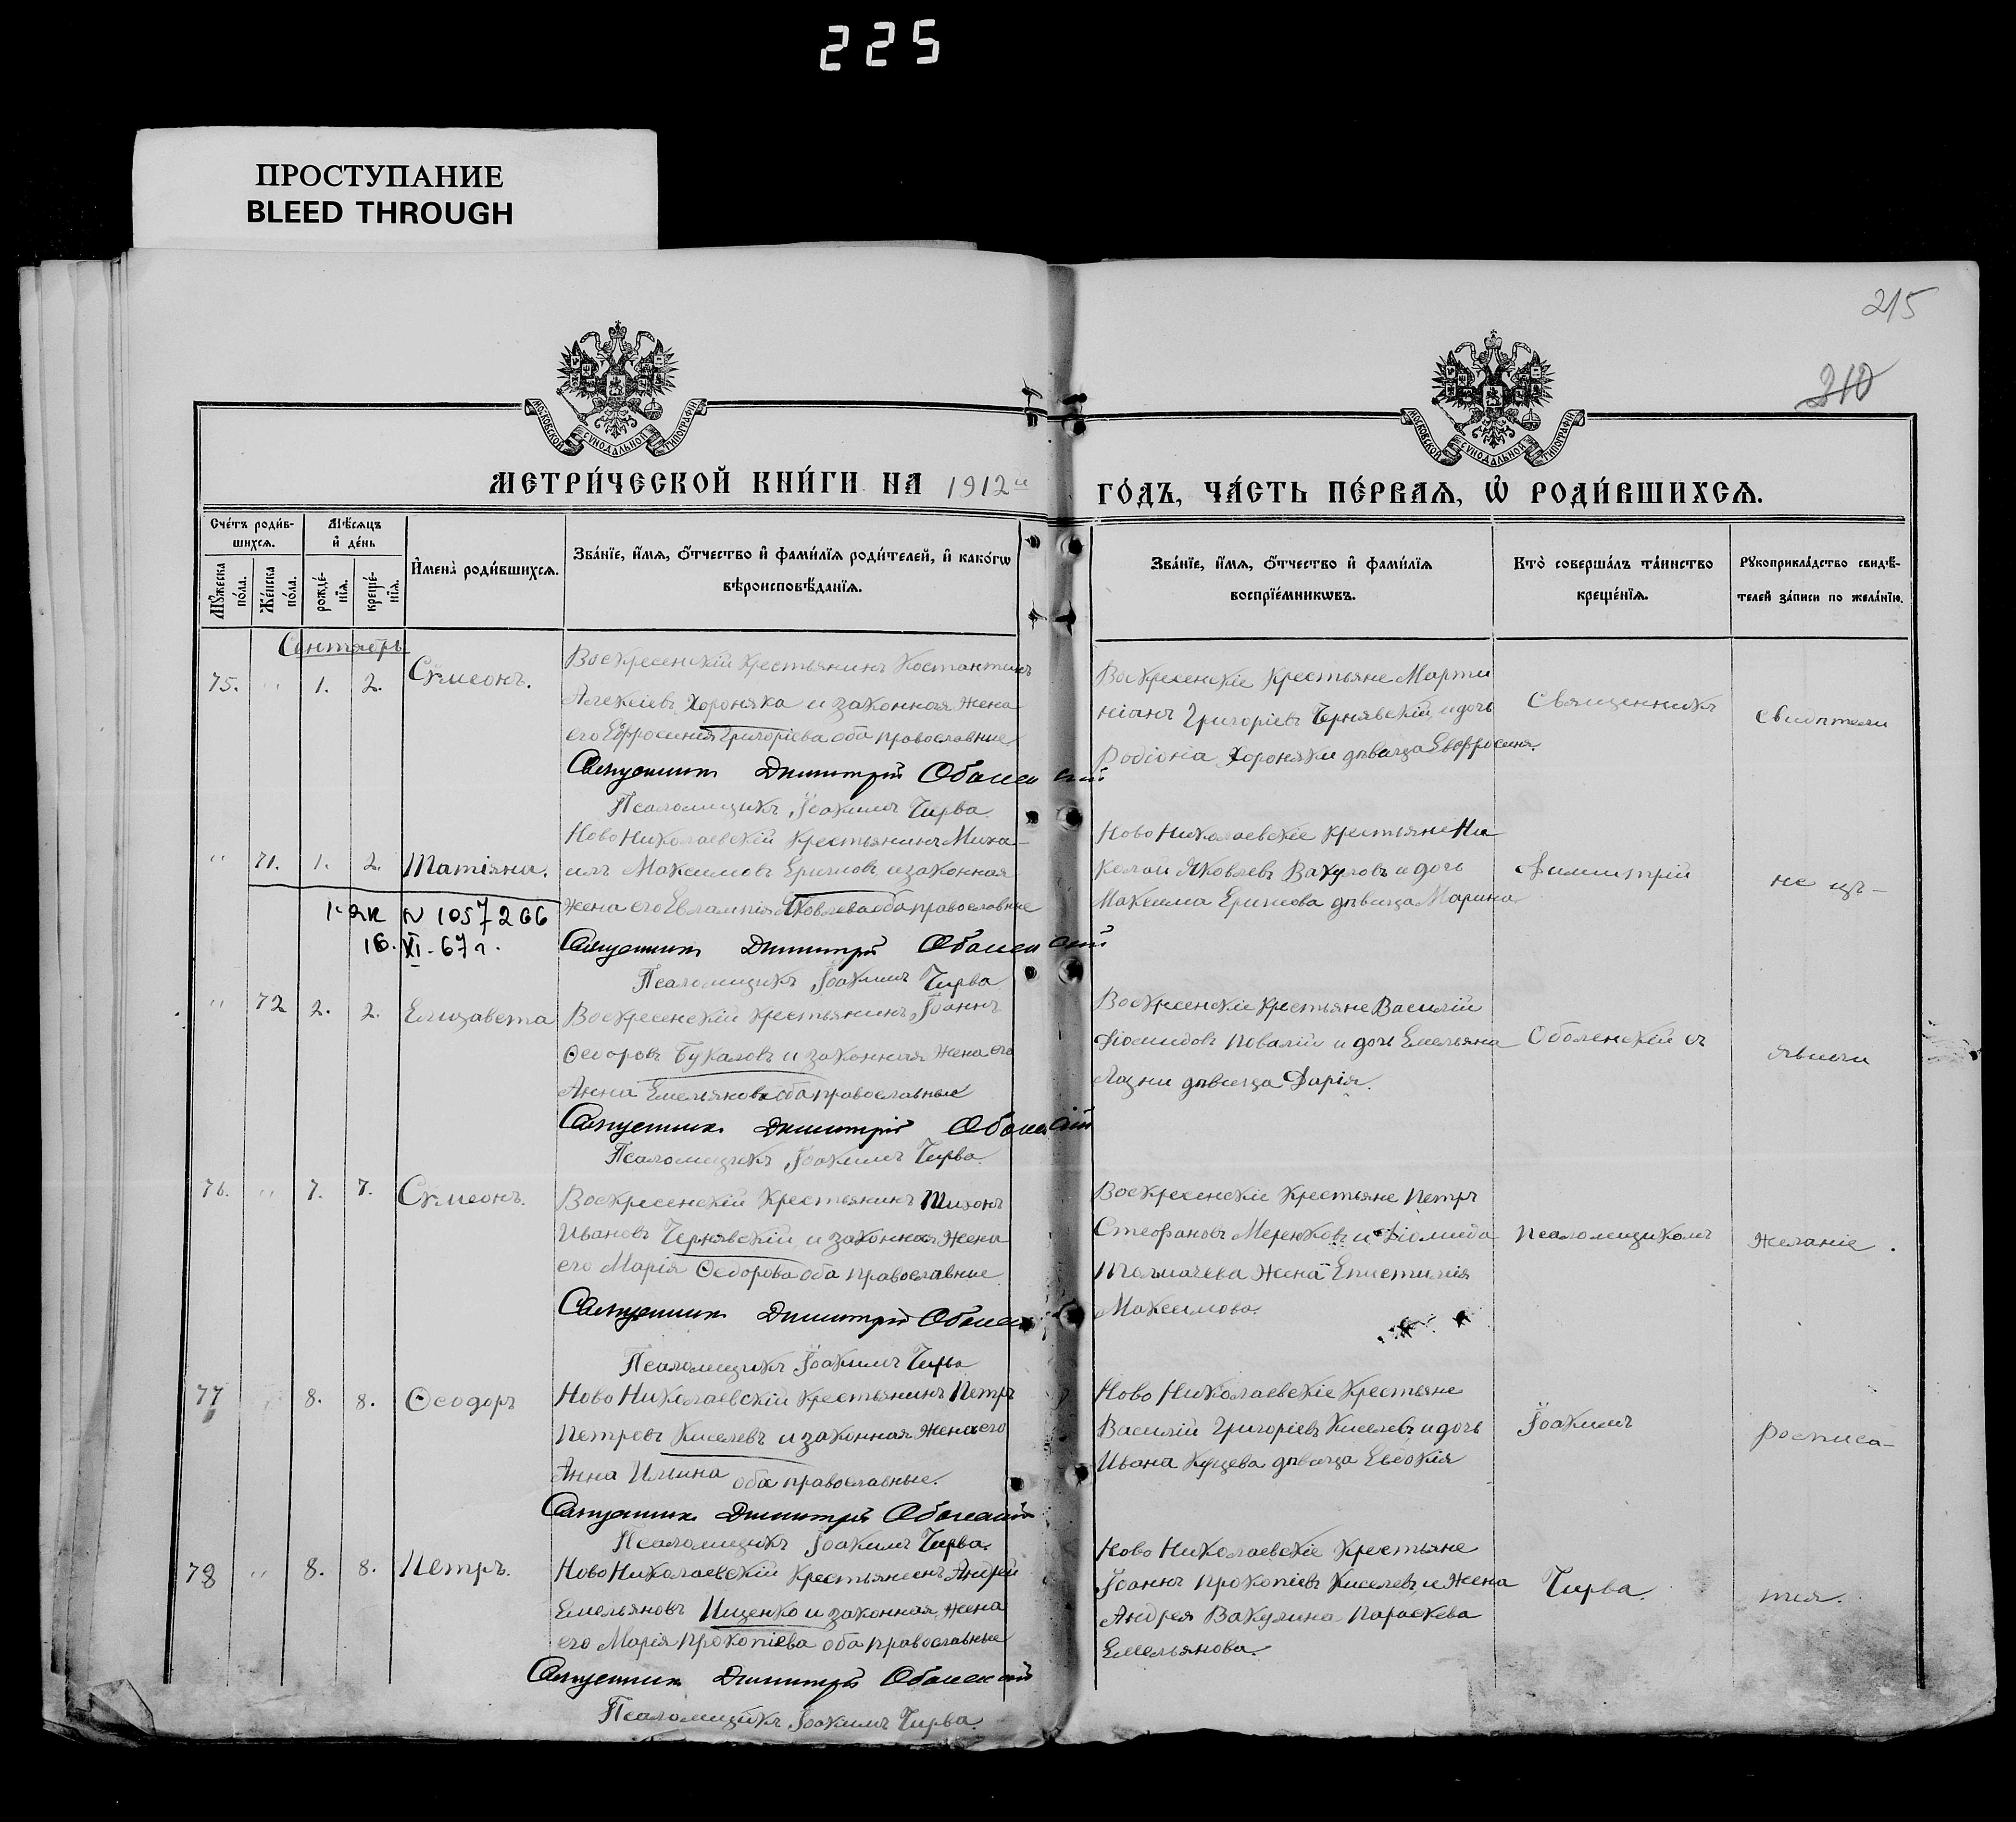 225
ПРОСТУПАНИЕ
BLEED THROUGH
215
210
МОСКОВСКОЙ СѴНОДАЛЬНОЙ ТИПОГРАФІИ
МОСКОВСКОЙ СѴНОДАЛЬНОЙ ТИПОГРАФІИ
МЕТРИ́ЧЕСКОЙ КНИ́ГИ НА 1912й
ГО́ДЪ, ЧА́СТЬ ПЕ́РВАѦ, Ѡ҆ РОДИ́ВШИХСѦ.
Сче́тъ роди́в-
шихсѧ.
Мѣ́сѧцъ
и҆ де́нь
Мꙋ́жеска
по́ла.
Же́нска
по́ла.
рожде́-
нїѧ.
креще́-
нїѧ.
И҆мена̀ роди́вшихсѧ.
Зва́нїе, и҆́мѧ, ѻ҆́тчество и҆ фами́лїѧ роди́телей, и҆ како́гѡ
вѣроисповѣ́данїѧ.
Зва́нїе, и҆́мѧ, ѻ҆́тчество и҆ фами́лїѧ
воспрїе́мникѡвъ.
Кто̀ соверша́лъ та́инство
креще́нїѧ.
Рꙋкоприкла́дство свидѣ́-
телей за́писи по жела́нїю.
Сентябрь
75. " 1. 2. Сѵмеонъ.
Воскресенскій крестьянинъ Костантинъ
Алексіевъ Хороняка и законная жена
его Ефросинія Григоріева оба православные
Священникъ Димитрій Оболенскій
Псаломщикъ Іоакимъ Чирва.
Воскресенскіе крестьяне Марти
ніанъ Григоріевъ Чернявскій и дочь
Родіона Хороняки дѣвица Евфросинія.
Священникъ
Свидѣтели
" 71. 1. 2. Татіяна.
НовоНиколаевскій крестьянинъ Миха-
илъ Максимовъ Ериновъ и законная
жена его Евлампія Яковлева оба православные
Священникъ Димитрій Оболенскій
Псаломщикъ Іоакимъ Чирва
N 1057266
16. XI-67г.
Ново Николаевскіе крестьяне Ни
колай Яковлевъ Вакуловъ и дочь
Максима Еринова дѣвица Марина
Димитрій
не изъ-
" 72 2. 2. Елизавета
Воскресенскій крестьянинъ Іоаннъ
Ѳеодоровъ Букаловъ и законная жена его
Анна Емельянова оба православные
Священникъ Димитрій Оболенскій
Псаломщикъ Іоакимъ Чирва.
Воскресенскіе крестьяне Василій
Діомидовъ Повалій и дочь Емельяна
Лазни дѣвица Дарія.
Оболенскій съ
явили
76. " 7. 7. Сѵмеонъ.
Воскресенскій крестьянинъ Тихонъ
Ивановъ Чернявскій и законная жена
его Марія Ѳеодорова оба православные
Священникъ Димитрій Оболенскій
Псаломщикъ Іоакимъ Чирва
Воскресенскіе крестьяне Петръ
Стефановъ Меренковъ и Діомида
Толмачева жена Епистимія
Максимова.
псаломщикомъ
желаніе.
77 8. 8. Ѳеодоръ
Ново Николаевскій крестьянинъ Петръ
Петровъ Киселевъ и законная жена его
Анна Ильина оба православные.
Священникъ Димитрій Оболенскій
Псаломщикъ Іоакимъ Чирва.
Ново Николаевскіе крестьяне
Василій Григоріевъ Киселевъ и дочь
Ивана Куцева дѣвица Евдокія
Іоакимъ
росписа-
78 " 8. 8. Петръ.
НовоНиколаевскій крестьянинъ Андрей
Емельяновъ Ищенко и законная жена
его Марія Прокопіева оба православные
Священникъ Димитрій Оболенскій
Псаломщикъ Іоакимъ Чирва.
Ново Николаевскіе крестьяне
Іоаннъ Прокопіевъ Киселевъ и жена
Андрея Вакулина Параскева
Емельянова.
Чирва.
тся.